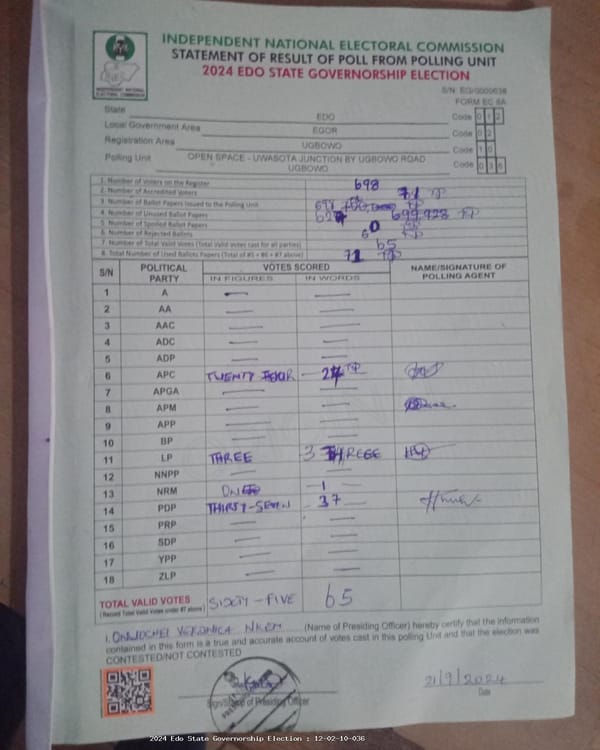 INDEPENDENT NATIONAL ELECTORAL COMMISSION
STATEMENT OF RESULT OF POLL FROM POLLING UNIT
2024 EDO STATE GOVERNORSHIP ELECTION
INDEPENDENT NATIONAL ELECTORAL COMMISSION
FORM EC 8A
State EDO Code 0 1 2
Local Government Area EGOR Code 0 2
Registration Area UGBOWO Code 1 0
Polling Unit OPEN SPACE - UWASOTA JUNCTION BY UGBOWO ROAD UGBOWO Code 0 3 6
1. Number of Voters on the Register 698
2. Number of Accredited Voters 71
3. Number of Ballot Papers Issued to the Polling Unit
4. Number of Unused Ballot Papers
5. Number of Spoiled Ballot Papers 0
6. Number of Rejected Ballots 6
7. Number of Total Valid Votes (Total Valid Votes cast for all parties) 65
8. Total Number of Used Ballots Papers (Total of #5 + #6 + #7 above) 71
S/N POLITICAL PARTY VOTES SCORED NAME/SIGNATURE OF POLLING AGENT
IN FIGURES IN WORDS
1 A — —
2 AA — —
3 AAC — —
4 ADC — —
5 ADP — —
6 APC TWENTY FOUR 24
7 APGA — —
8 APM — —
9 APP — —
10 BP — —
11 LP THREE 3
12 NNPP — —
13 NRM ONE 1
14 PDP THIRTY-SEVEN 37
15 PRP — —
16 SDP — —
17 YPP — —
18 ZLP — —
TOTAL VALID VOTES SIXTY-FIVE 65
(Record Total Valid Votes under #7 above)
I, ONWOCHEI VERONICA NKEM (Name of Presiding Officer) hereby certify that the information
contained in this form is a true and accurate account of votes cast in this polling Unit and that the election was
CONTESTED/NOT CONTESTED
Sign/Stamp of Presiding Officer
21/9/2024
Date
2024 Edo State Governorship Election : 12-02-10-036